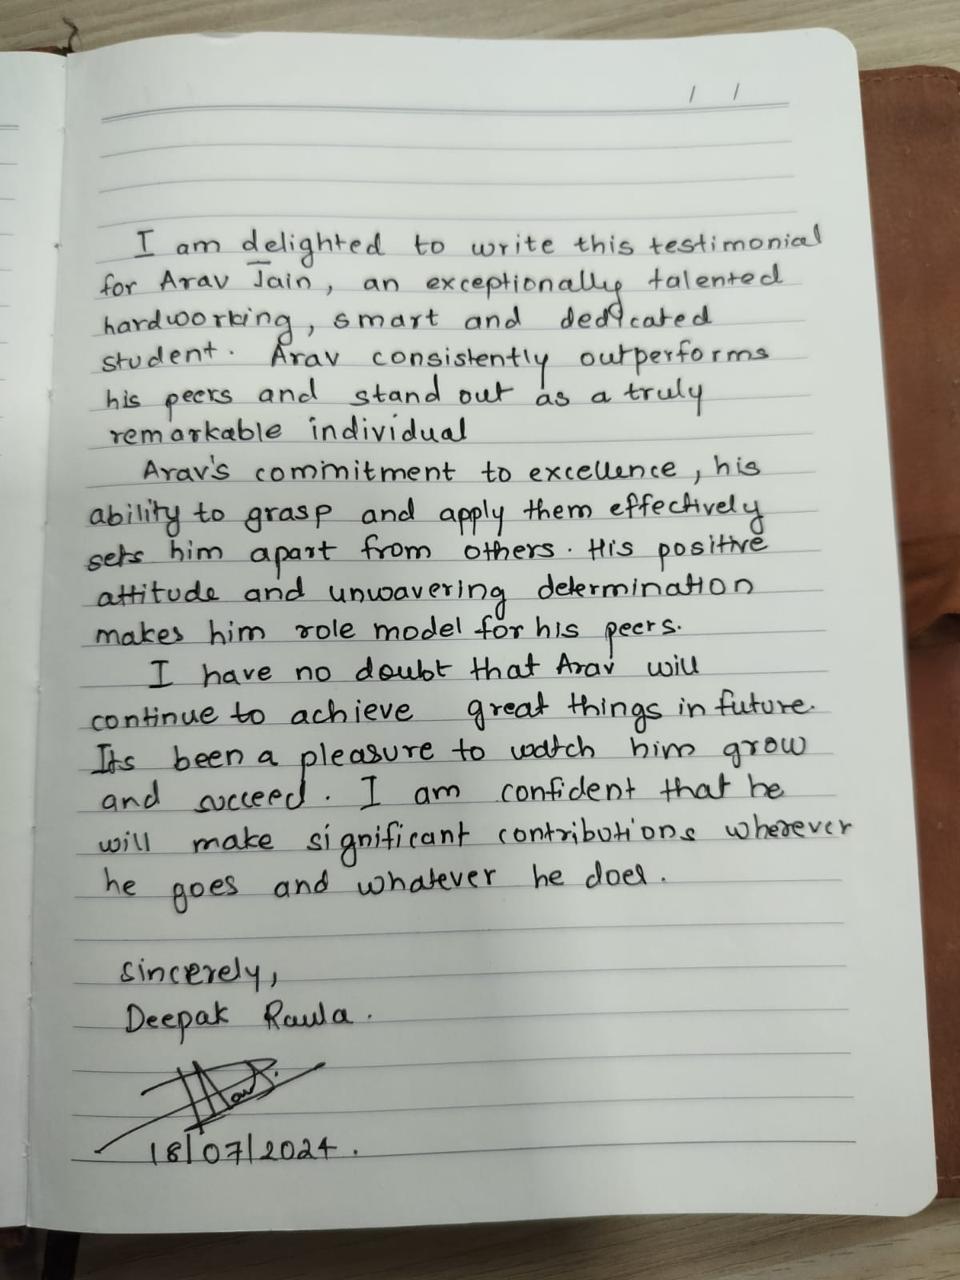 I am delighted to write this testimonial
for Arav Jain, an exceptionally talented
hardworking, smart and dedicated
student. Arav consistently outperforms
his peers and stand out as a truly
remarkable individual
Arav's commitment to excellence, his
ability to grasp and apply them effectively
sets him apart from others. His positive
attitude and unwavering determination
makes him role model for his peers.
I have no doubt that Arav will
continue to achieve great things in future.
Its been a pleasure to watch him grow
and succeed. I am confident that he
will make significant contributions wherever
he goes and whatever he does.
Sincerely,
Deepak Raula.
18/07/2024.